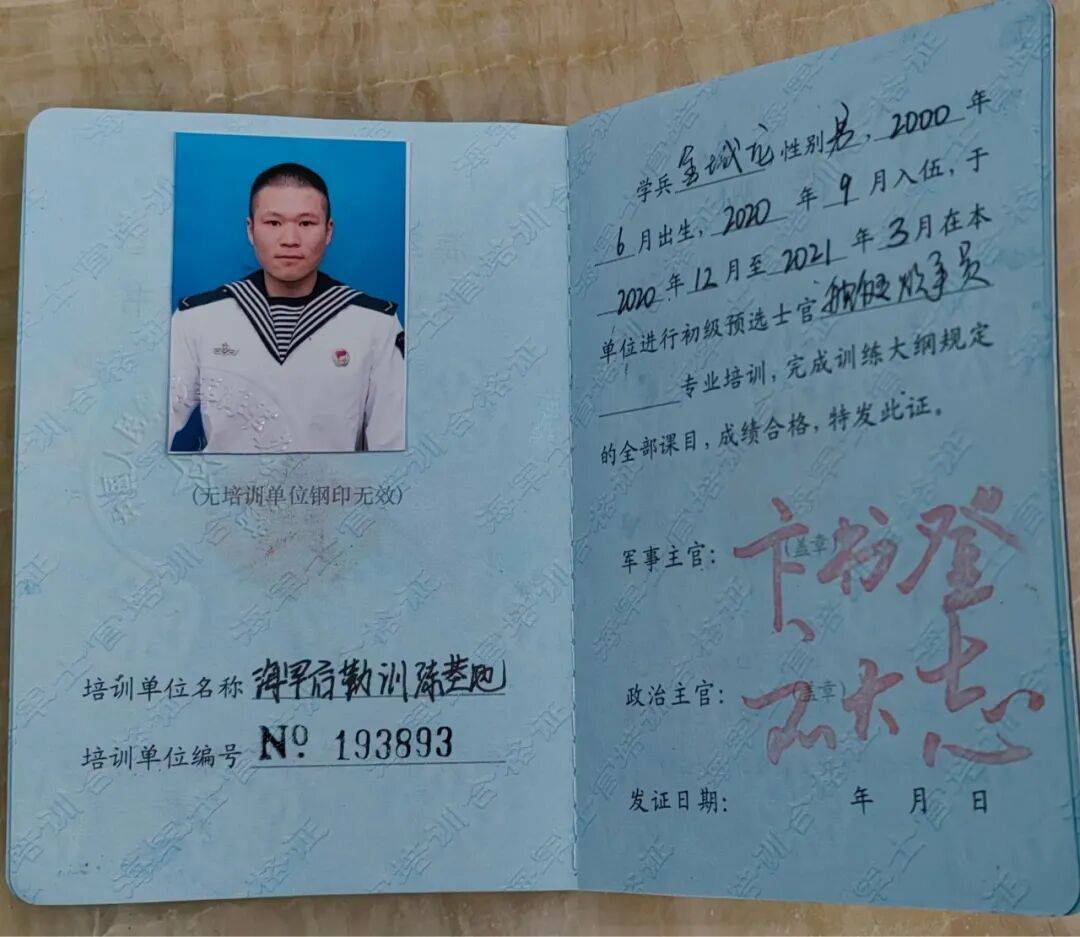 (无培训单位钢印无效)
培训单位名称 海军后勤训练基地
培训单位编号 Nº 193893
学兵 金城龙 性别男,2000年
6月出生,2020年9月入伍,于
2020年12月至2021年3月在本
单位进行初级预选士官
专业培训,完成训练大纲规定
的全部课目,成绩合格,特发此证。
军事主官: (盖章) 卞书登
政治主官: (盖章) 大志
发证日期: 年 月 日
海军士官培训合格证